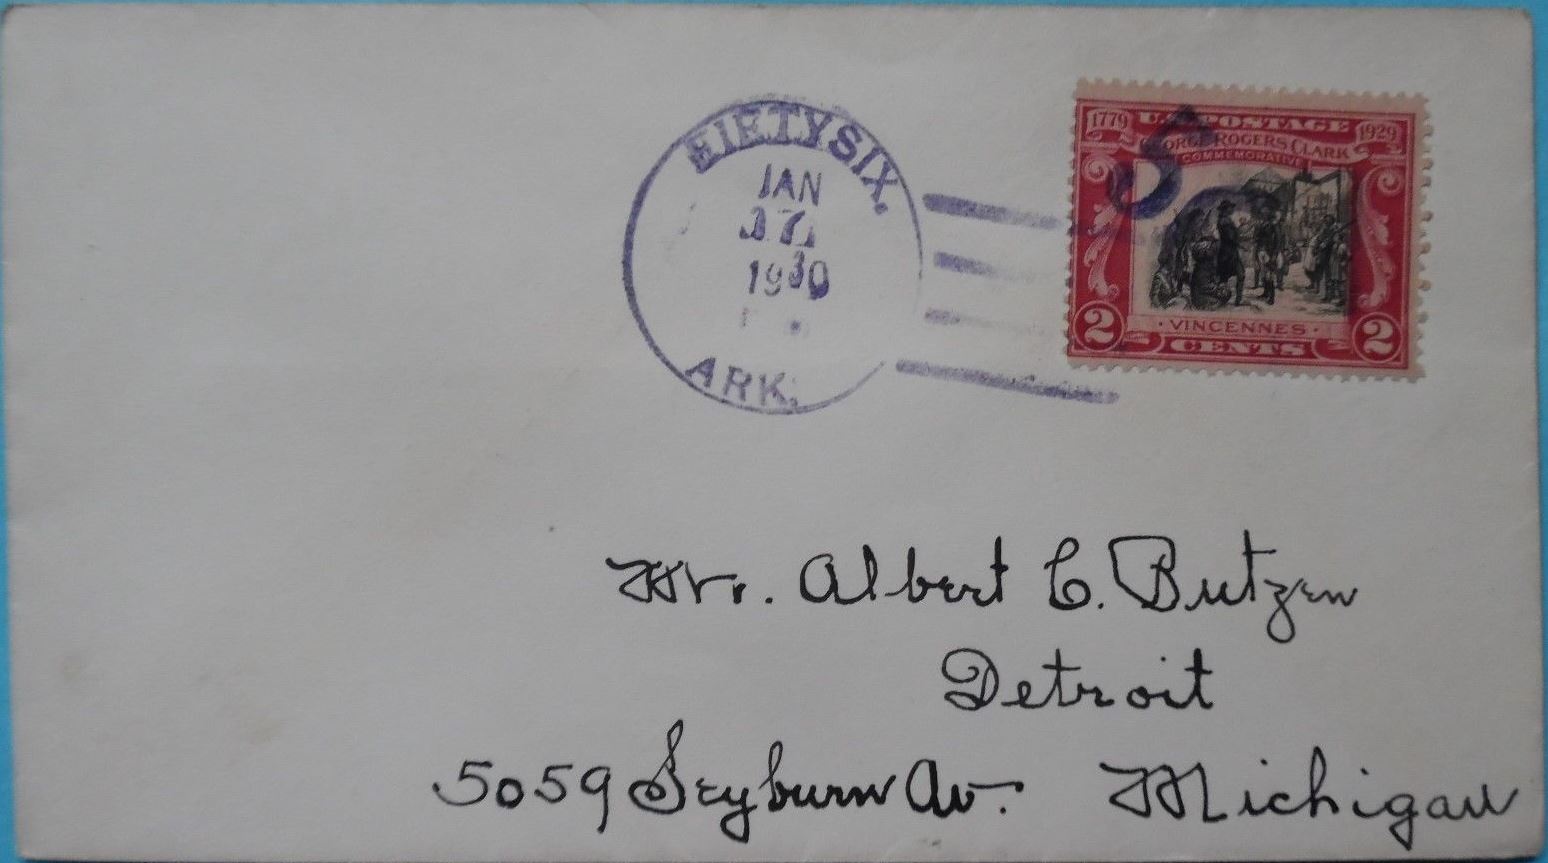 FIFTYSIX.
JAN
17
1930
ARK.
1779 U.S. POSTAGE 1929
GEORGE ROGERS CLARK
COMMEMORATIVE
VINCENNES
2 CENTS 2
Mr. Albert C. Butzen
Detroit
5059 Seyburn Av. Michigan